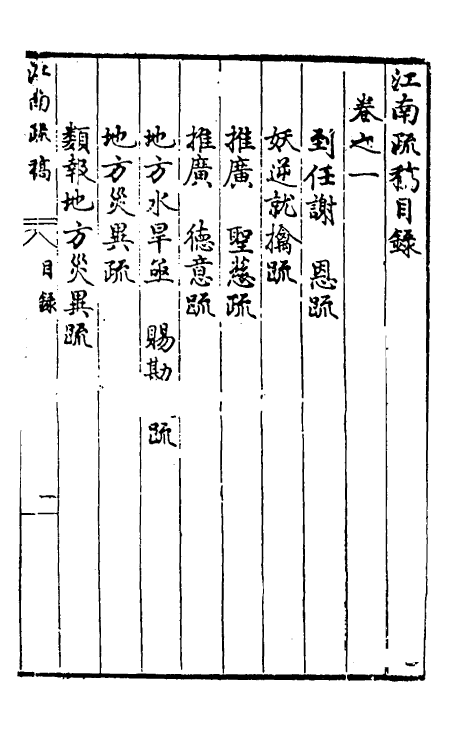 江南疏稿目錄
卷之一
到任謝　恩疏
妖逆就擒疏
推廣　聖慈疏
推廣　德意疏
地方水旱亟　賜勘　疏
地方災異疏
類報地方災異疏
江南疏稿　目錄　一